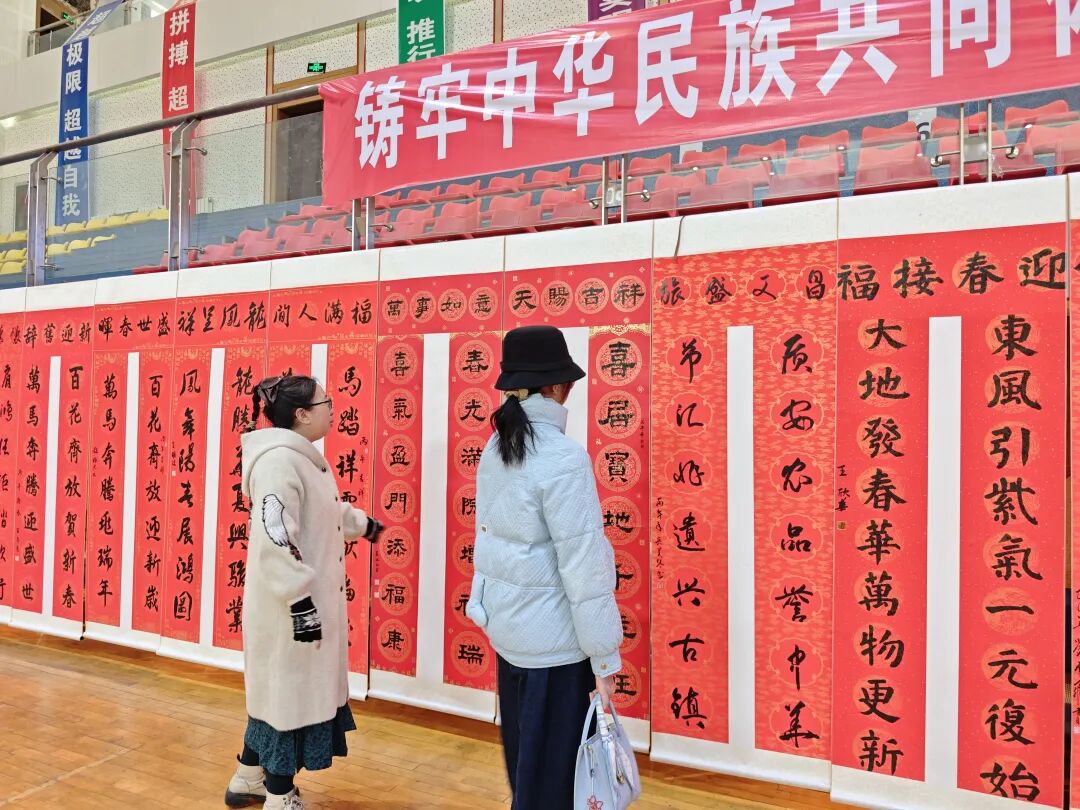 极限 超越自我
拼搏 超
推行
铸牢中华民族共同
迎春接福
東風引紫氣一元復始
大地發春華萬物更新
昌文盛旅
质安农品誉中华
节汇非遗兴古镇
天賜吉祥
喜居寶地
萬事如意
春光滿院增
喜氣盈門添福康
福满人间
馬踏祥雲
龍鳳呈祥
龍騰華夏興駿業
鳳舞陽春展鴻圖
盛世春暉
百花齊放迎新歲
萬馬奔騰兆瑞年
辞舊迎新
百花齊放賀新春
萬馬奔騰迎盛世